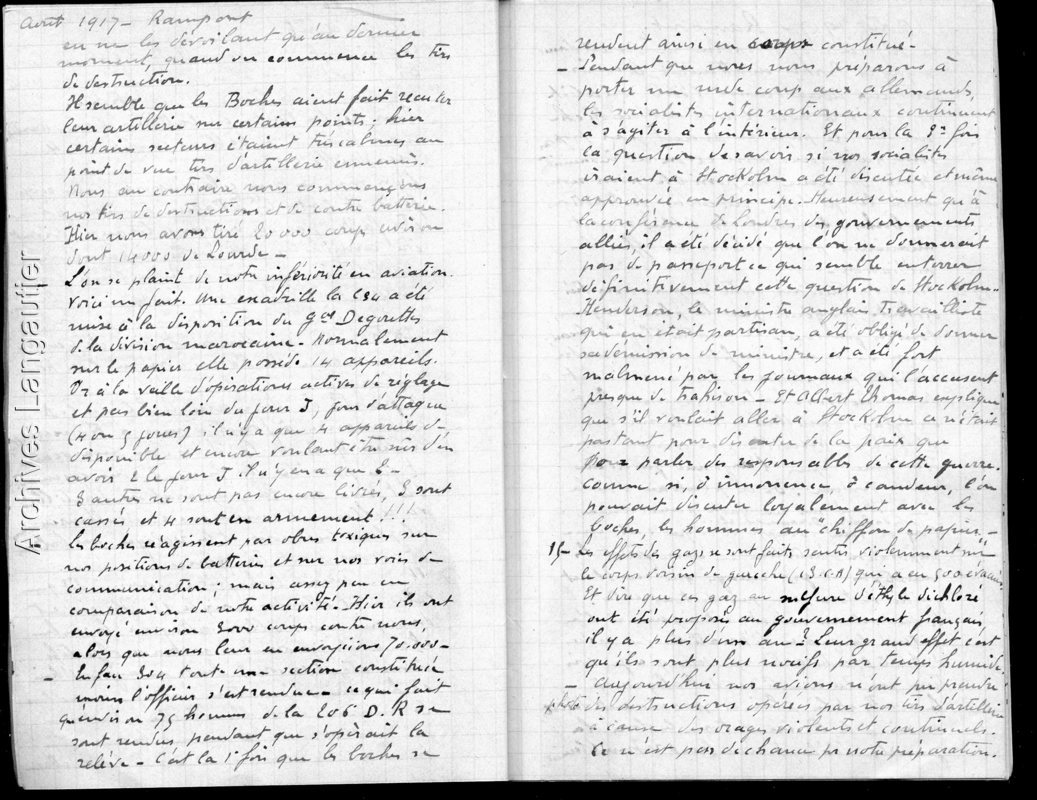 Août 1917 - Rampont
en ne les dévoilant qu'au dernier
moment, quand on commence les tirs
de destruction.
Il semble que les Boches aient fait reculer
leur artillerie sur certains points. Hier
certains secteurs étaient très calmes au
point de vue tirs d'artillerie ennemis.
Nous au contraire nous commençons
nos tirs de destructions et de contre batterie.
Hier nous avons tiré 20 000 coups environ
dont 14000 de Lourde -
L'on se plaint de notre infériorité en aviation.
Voici un fait. Une escadrille la C 34 a été
mise à la disposition du Gal Degouttes
de la division marocaine - Normalement
sur le papier elle possède 14 appareils.
Or à la veille d'opérations actives de réglage
et pas bien loin du jour J, jour d'attaque
(4 ou 5 jours) il n'y a que 4 appareils de
disponible et encore voulant être sûr d'en
avoir 2 le jour J il n'y en a que 2 -
3 autres ne sont pas encore livrés, 3 sont
cassés et 4 sont en armement !!!
Les boches réagissent par obus toxiques sur
nos positions de batteries et sur nos voies de
communication ; mais assez peu en
comparaison de notre activité - Hier ils ont
envoyé environ 3000 coups contre nous,
alors que nous leur en envoyions 70.000 -
- Au 304 toute une section constituée
moins l'officier s'est rendue - ce qui fait
qu'environ 75 hommes de la 206 D.R se
sont rendus pendant que s'opérait la
relève - C'est la 1e fois que les boches se
rendent ainsi en corps constitué -
- Pendant que nous nous préparons à
porter un rude coup aux allemands,
les socialistes internationaux continuent
à s'agiter à l'intérieur. Et pour la 2e fois
la question de savoir si nos socialistes
iraient à Stockolm a été discutée et même
approuvée en principe. Heureusement qu'à
la conférence de Londres des gouvernements
alliés il a été décidé que l'on ne donnerait
pas de passeport ce qui semble enterrer
définitivement cette question de Stockolm -
Henderson, le ministre anglais travailliste
qui en était partisan, a été obligé de donner
sa démission de ministre, et a été fort
malmené par les journaux qui l'accusent
presque de trahison - Et Albert Thomas explique
que s'il voulait aller à Stockolm ce n'était
pas tant pour discuter de la paix que
pour parler des responsables de cette guerre.
Comme si, ô innocence, ô candeur, l'on
pouvait discuter loyalement avec les
boches, les hommes au "chiffon de papier" -
15 - Les effets des gaz se sont faits sentir violemment sur
le corps voisin de gauche qui a eu 500 évacués
Et dire que ces gaz au sulfure d'éthyle dichloré
ont été proposés au gouvernement français,
il y a plus d'un an ? Leur grand effet c'est
qu'ils sont plus nocifs par temps humide.
- Aujourd'hui nos avions n'ont pu prendre
photo des destructions opérées par nos tirs d'artillerie
à cause des orages violents et continuels.
Ce n'est pas de chance pr notre préparation.
Archives Langautier